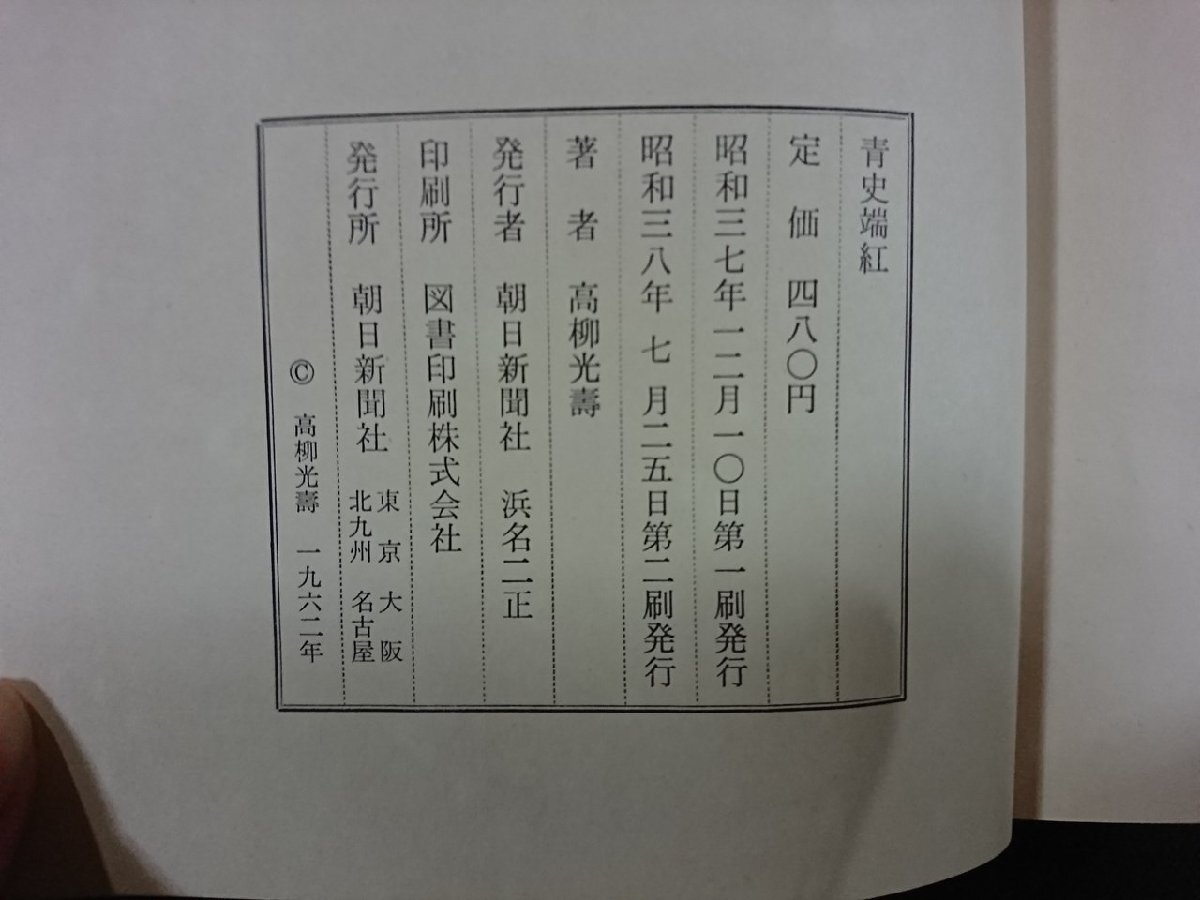 青史端紅
定価 四八〇円
昭和三七年一二月一〇日第一刷発行
昭和三八年 七 月二五日第二刷発行
著者 高柳光壽
発行者 朝日新聞社 浜名二正
印刷所 図書印刷株式会社
発行所 朝日新聞社 東京 大阪
北九州 名古屋
© 高柳光壽 一九六二年